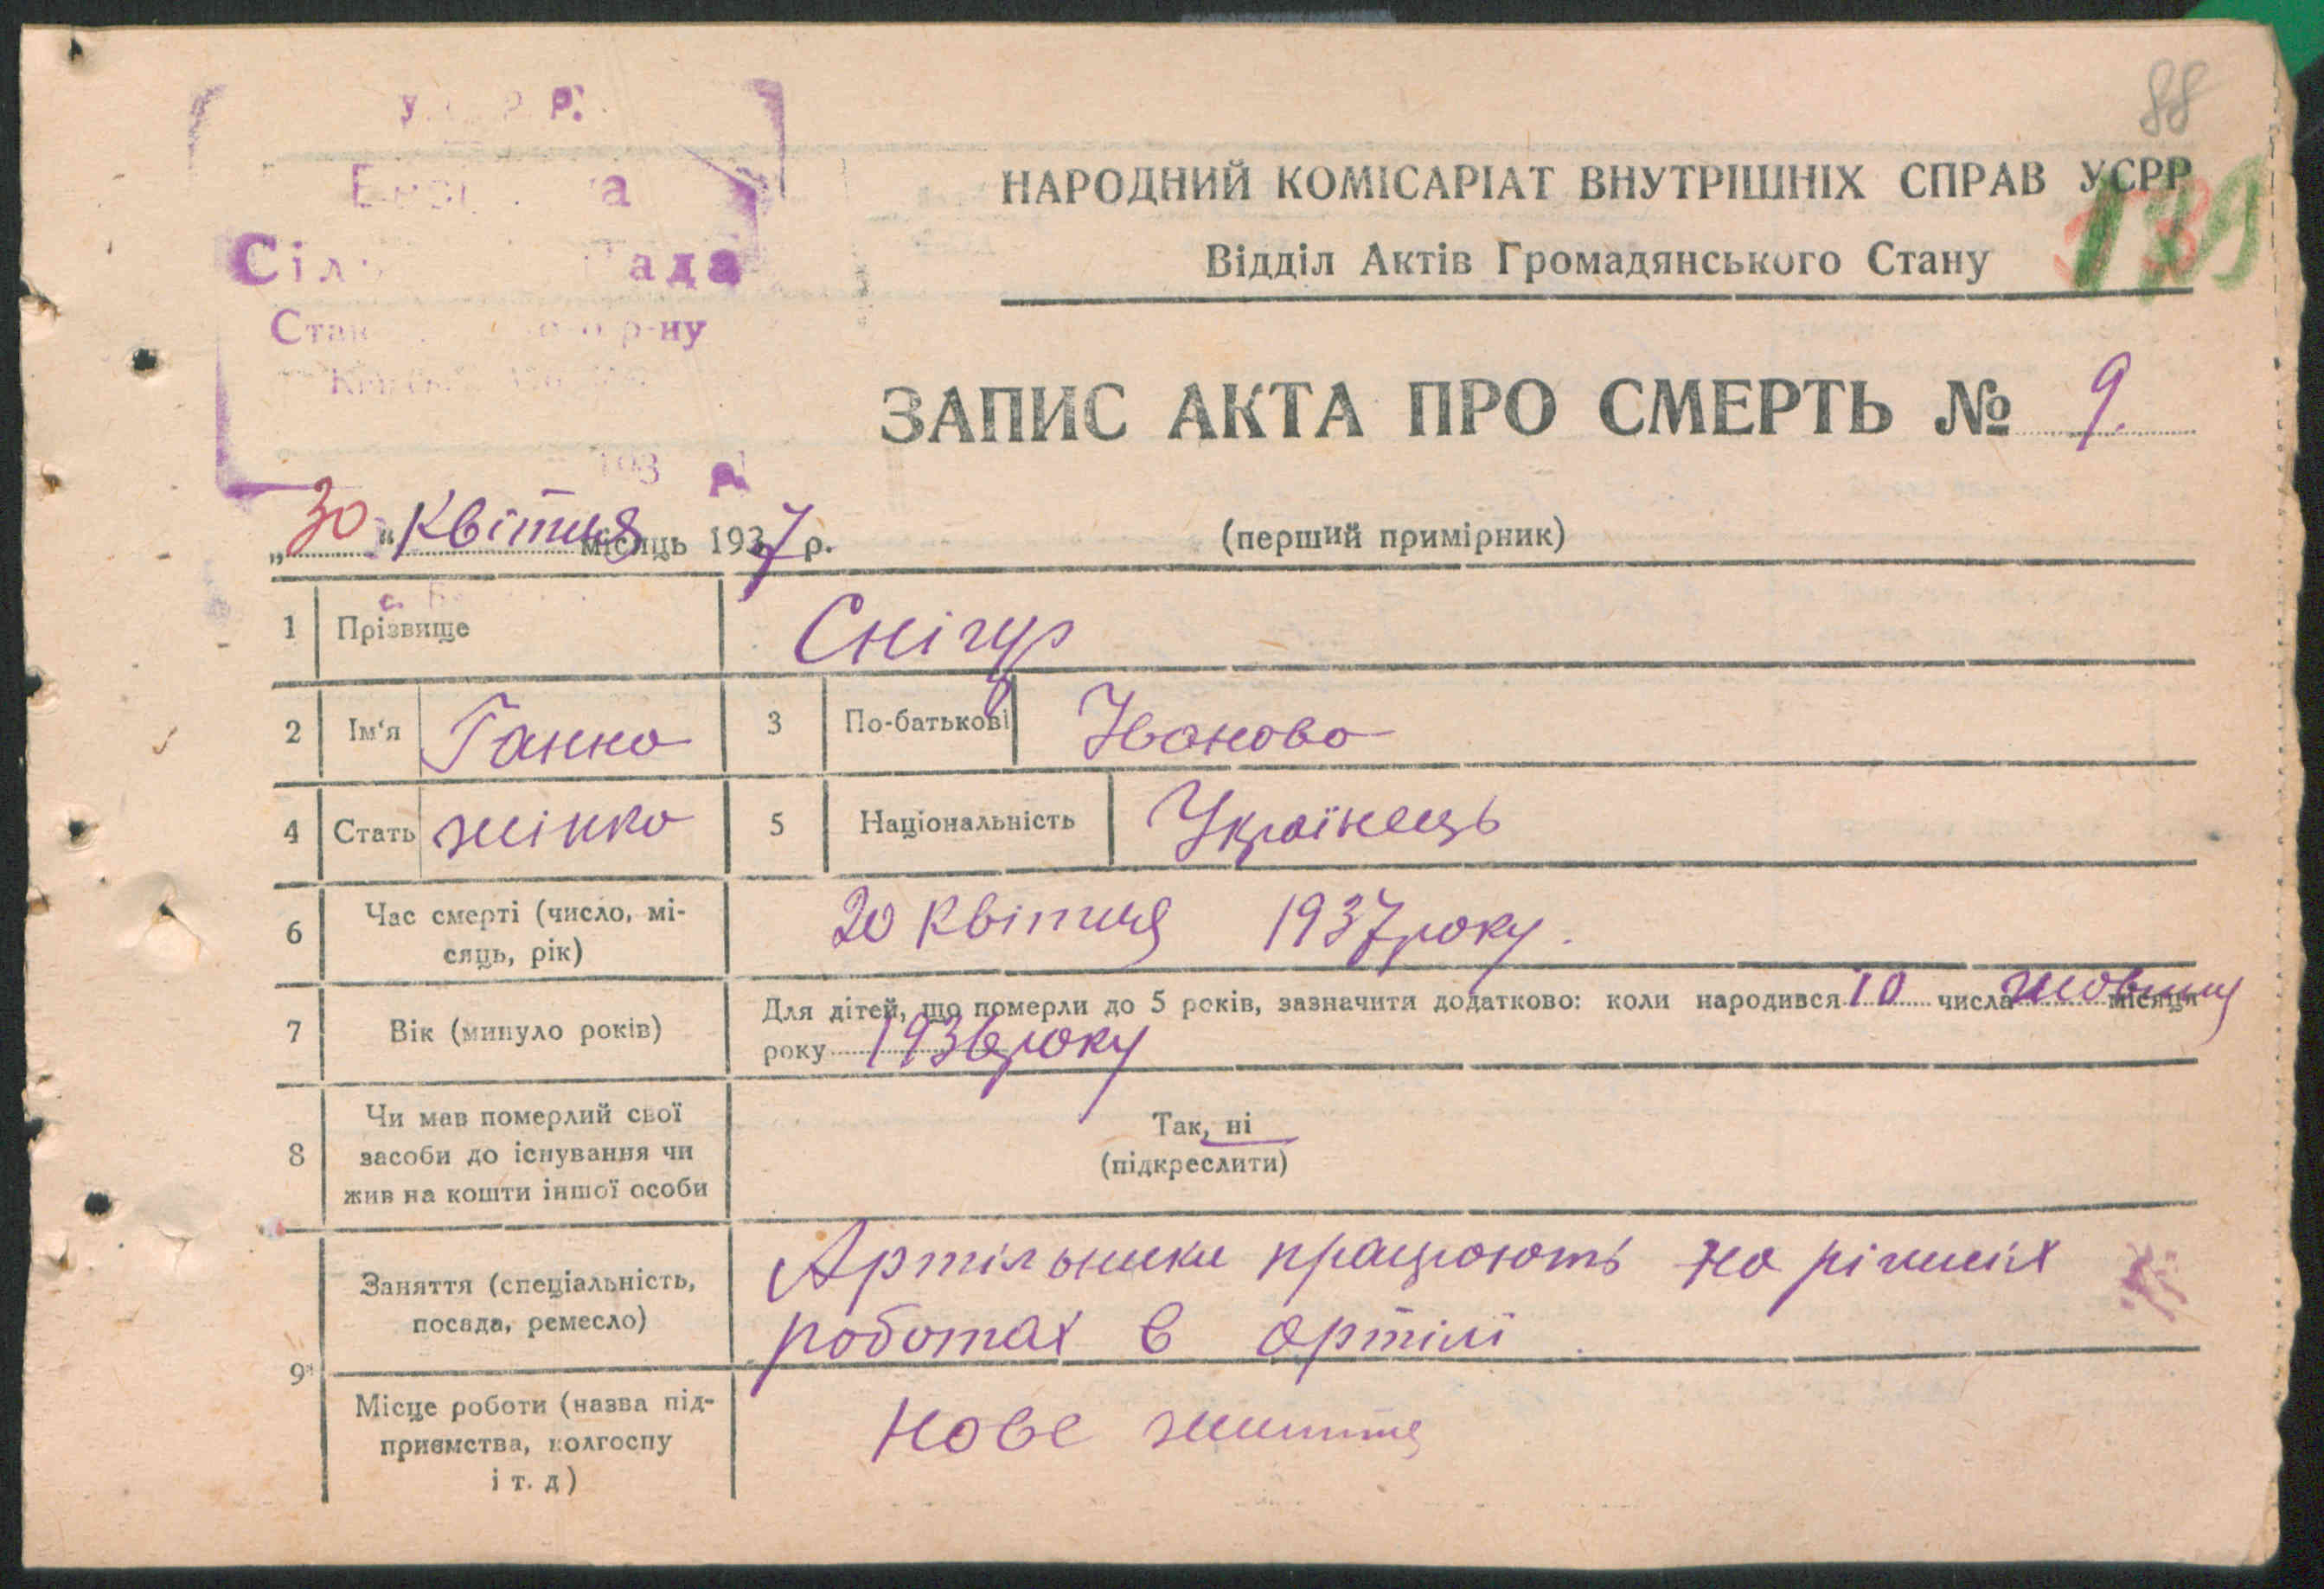 88
НАРОДНИЙ КОМІСАРІАТ ВНУТРІШНІХ СПРАВ УСРР
Відділ Актів Громадянського Стану
р-ну
ЗАПИС АКТА ПРО СМЕРТЬ № 9.
193 р.
„30“ Квітня місяць 1937 р.
(перший примірник)
1 Прізвище Снігур
2 Ім'я Ганна 3 По-батькові Іванова
4 Стать жінка 5 Національність Українець
6 Час смерті (число, мі-
сяць, рік) 20 Квітня 1937 року.
7 Вік (минуло років) Для дітей, що померли до 5 років, зазначити додатково: коли народився 10 числа жовтня місяця
року 1936 року
8 Чи мав померлий свої
засоби до існування чи
жив на кошти іншої особи
Так, ні
(підкреслити)
9 Заняття (спеціальність,
посада, ремесло)
Артільники працюють на різних
роботах в артілі
Місце роботи (назва під-
приємства, колгоспу
і т. д)
Нове життя